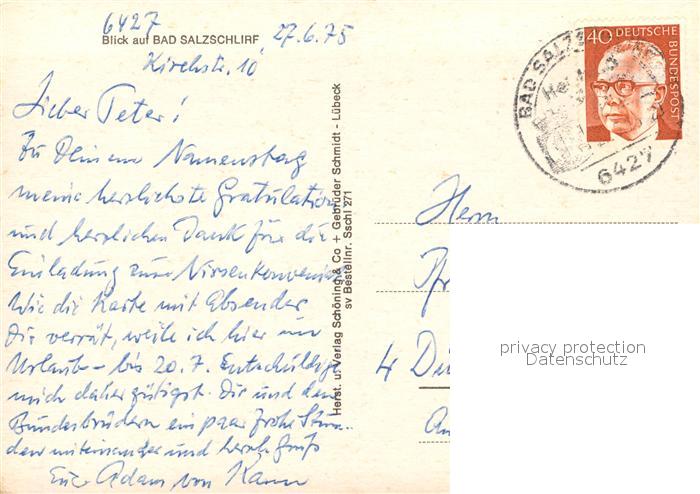 6427
Blick auf BAD SALZSCHLIRF 27.6.75
Kirchstr. 10
Lieber Peter!
Zu Deinem Namenstag
meine herzlichste Gratulation
und herzlichen Dank für die
Einladung zum
Wie die Karte mit Absender
Dir verrät, weile ich hier im
Urlaub - bis 20.7. Entschuldige
mich daher gütigst. Dir und den
Bundesbrüdern ein paar frohe Stun-
den miteinander und herzl. Gruß
Euer Adam von
Herst. u. Verlag Schöning & Co + Gebrüder Schmidt - Lübeck
sv Bestellnr. Sschl 271
BAD SALZS
6427
40 DEUTSCHE
BUNDESPOST
Herrn
4 Dü
An
privacy protection
Datenschutz